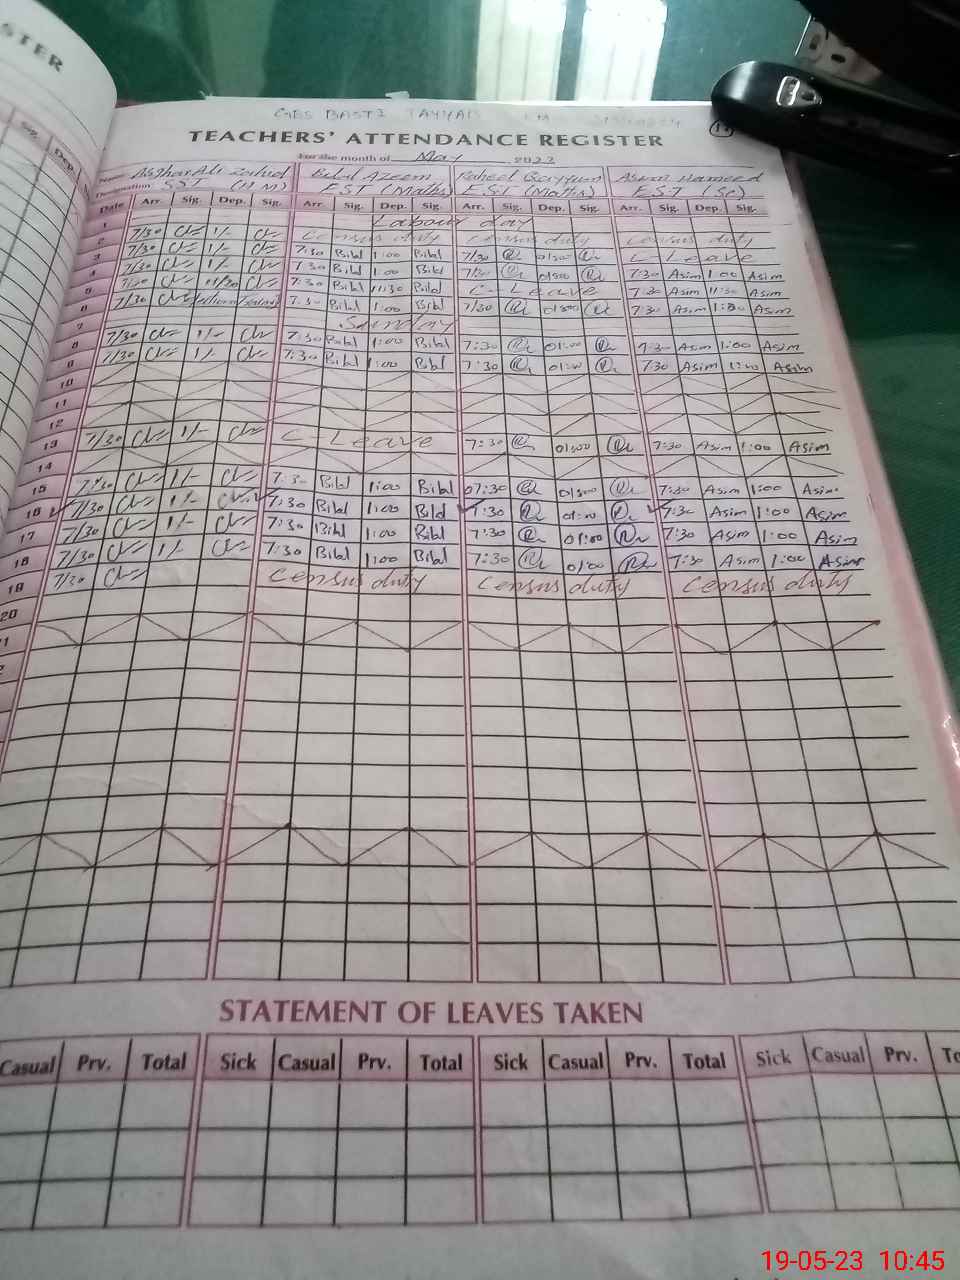 STER
Sig.
Dep.
GBS BASTI TAYYAB
TEACHERS' ATTENDANCE REGISTER
For the month of May 2023
Name Asghar Ali Zahid Bilal Azeem Raheel Qayyum Asim Hameed
Designation SST (HM) EST (Maths) EST (Maths) EST (Sc)
Date Arr. Sig. Dep. Sig. Arr. Sig. Dep. Sig. Arr. Sig. Dep. Sig. Arr. Sig. Dep. Sig.
1 Labour day
2 7/30 1/- Census duty Census duty Census duty
3 7/30 1/- 7:30 Bilal 1:00 Bilal 7/30 01:00 C-Leave
4 7/30 1/- 7:30 Bilal 1:00 Bilal 7/30 01:00 7:30 Asim 1:00 Asim
5 7/30 11/30 7:30 Bilal 11:30 Bilal C-Leave 7:30 Asim 11:30 Asim
6 7/30 7:30 Bilal 1:00 Bilal 7/30 01:00 7:30 Asim 1:00 Asim
7 Sunday
8 7/30 1/- 7:30 Bilal 1:00 Bilal 7:30 01:00 7:30 Asim 1:00 Asim
9 7/30 1/- 7:30 Bilal 1:00 Bilal 7:30 01:00 7:30 Asim 1:00 Asim
10
11
12
13 7/30 1/- C-Leave 7:30 01:00 7:30 Asim 1:00 Asim
14
15 7/30 1/- 7:30 Bilal 1:00 Bilal 07:30 01:00 7:30 Asim 1:00 Asim
16 7/30 1/- 7:30 Bilal 1:00 Bilal 7:30 01:00 7:30 Asim 1:00 Asim
17 7/30 1/- 7:30 Bilal 1:00 Bilal 7:30 01:00 7:30 Asim 1:00 Asim
18 7/30 1/- 7:30 Bilal 1:00 Bilal 7:30 01:00 7:30 Asim 1:00 Asim
19 7/30 Census duty Census duty Census duty
20
1
2
STATEMENT OF LEAVES TAKEN
Casual Prv. Total Sick Casual Prv. Total Sick Casual Prv. Total Sick Casual Prv. To
19-05-23 10:45